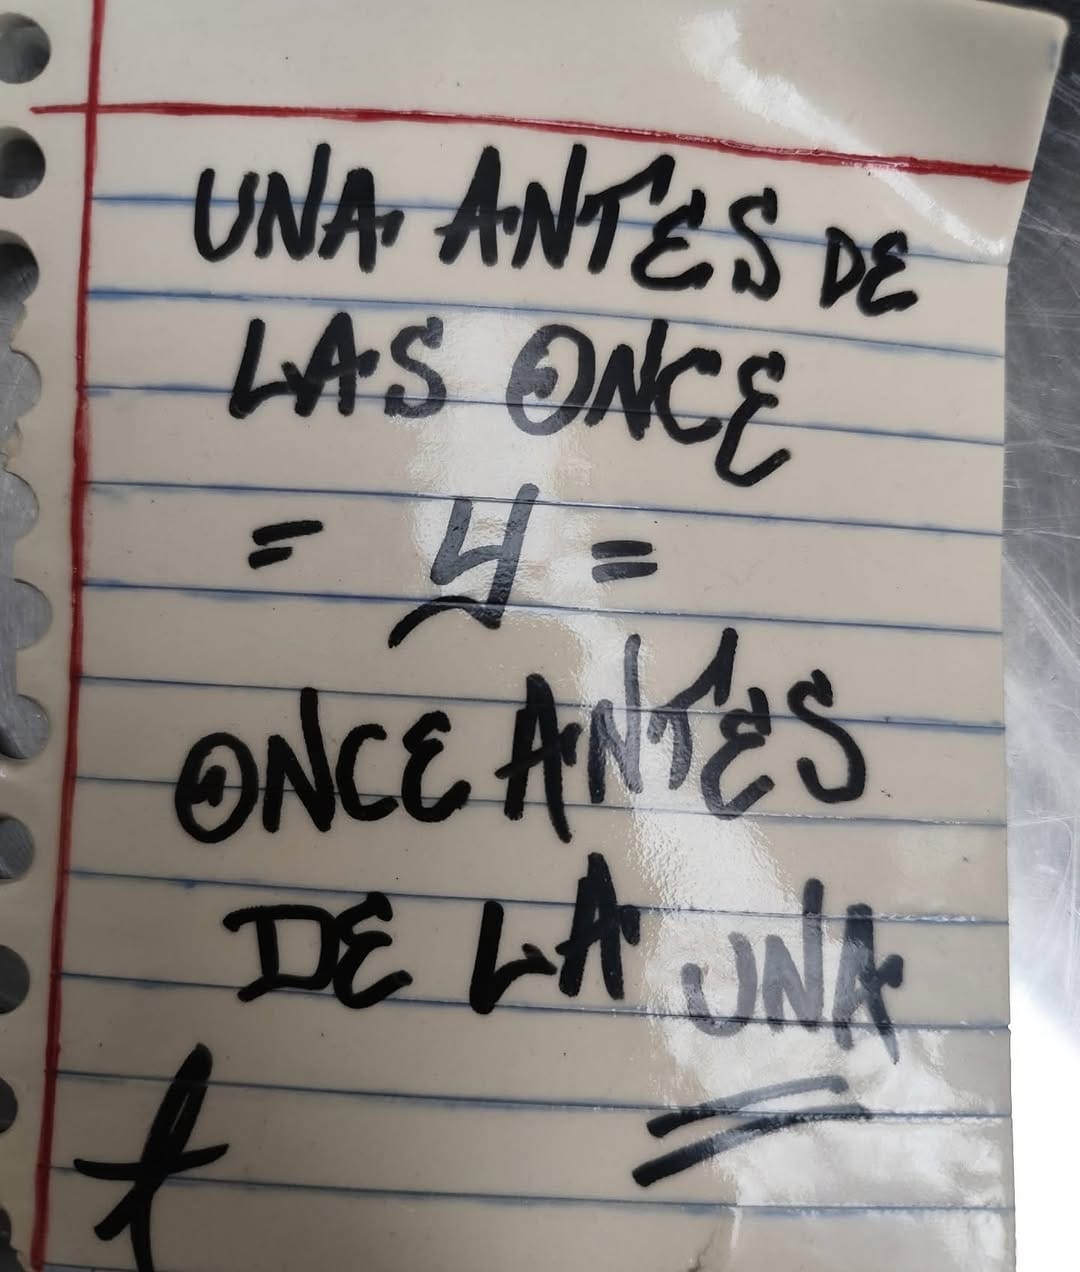 UNA ANTES DE
LAS ONCE
= Y =
ONCE ANTES
DE LA UNA